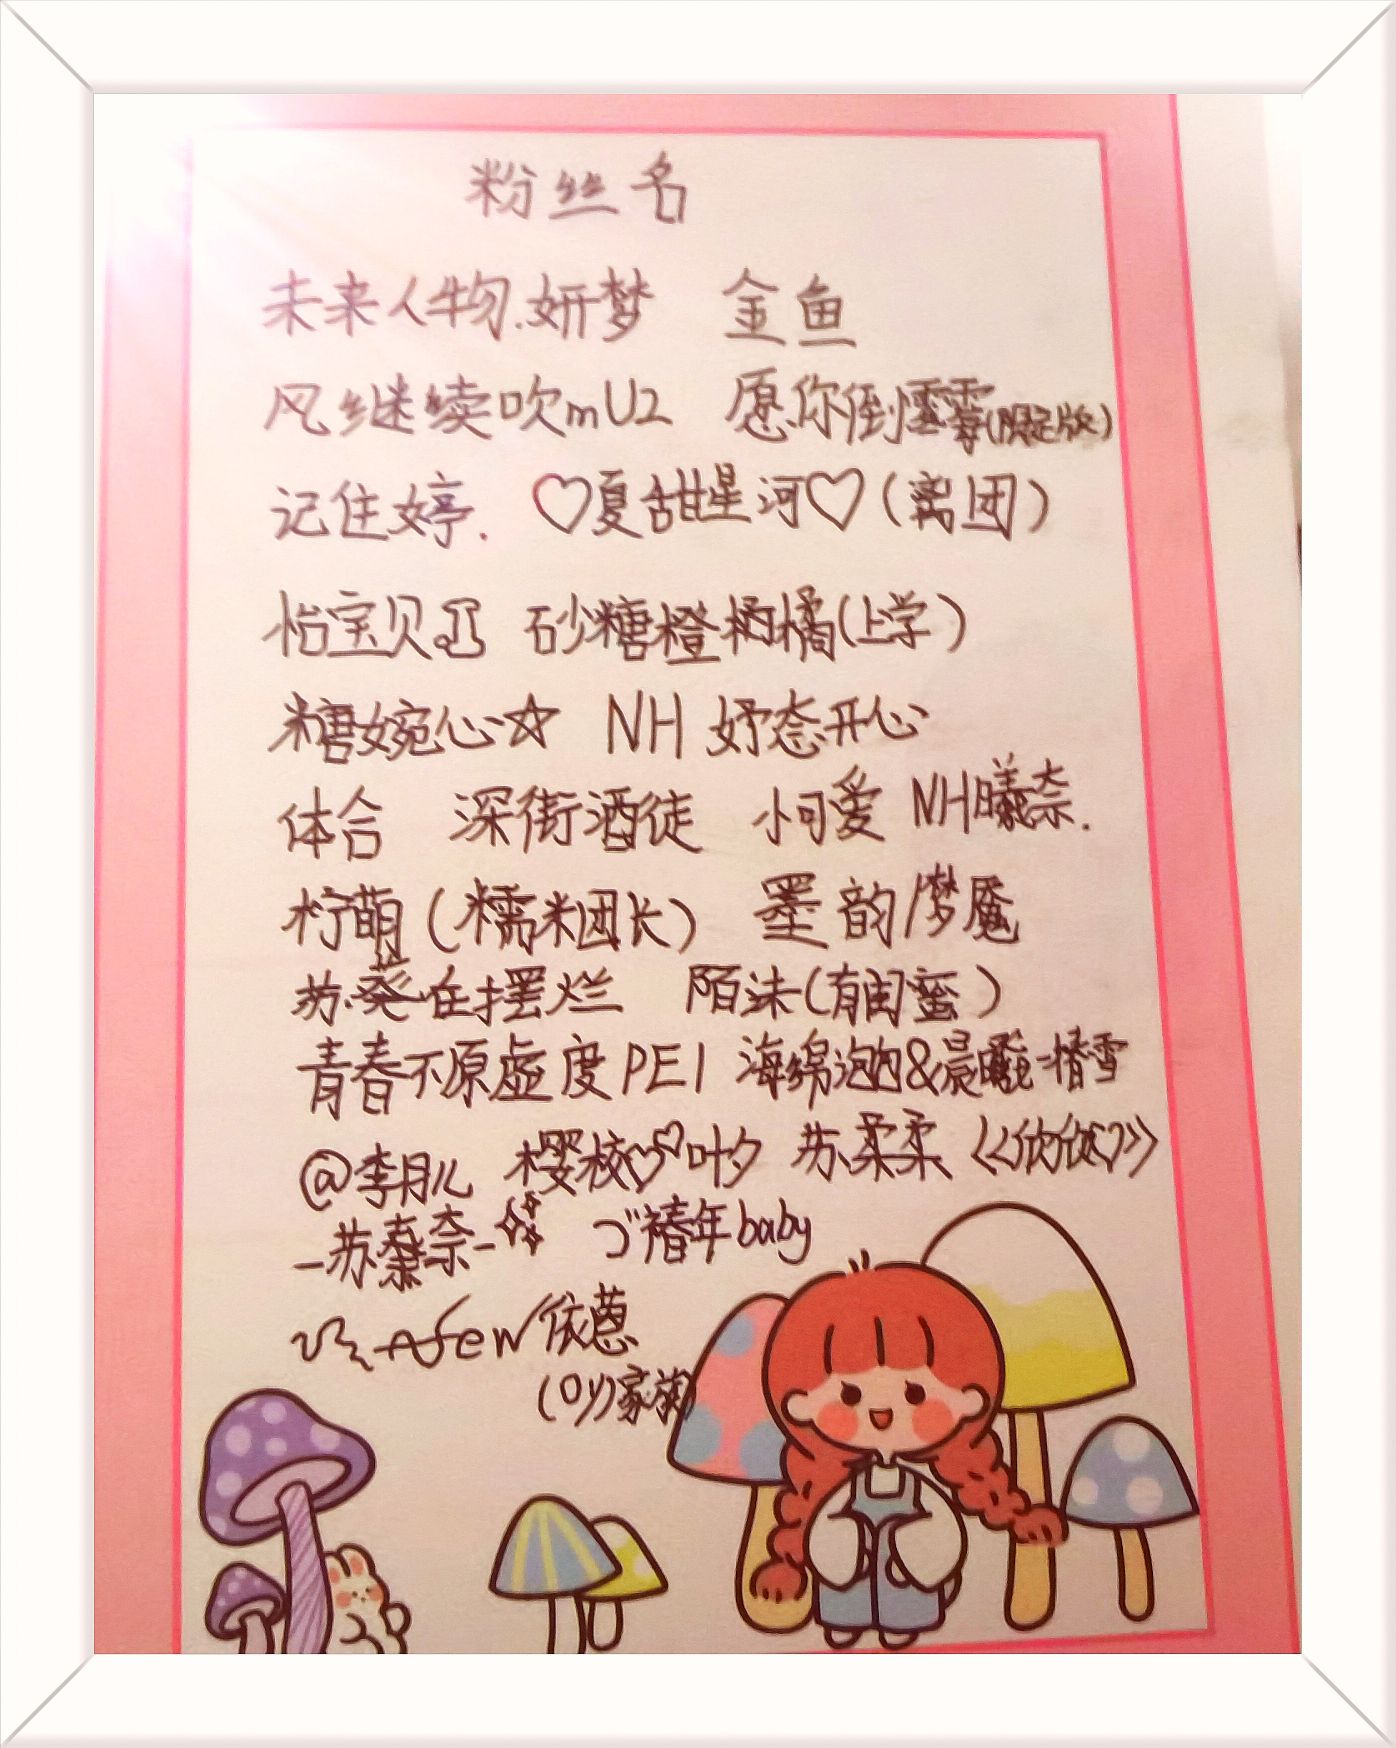 粉丝名
未来人物.妍梦 金鱼
风继续吹mU2 愿你倒霉(限定版)
记住婷. ♡夏甜星河♡(离团)
怡宝贝 砂糖橙橘(上学)
糖婉心☆ NH 妤奈开心
体合 深街酒徒 小可爱 NH曦奈.
柠萌(糯米团长) 墨韵梦魇
苏葵在摆烂 陌沫(有闺蜜)
青春不原虚度PEI 海绵泡泡&晨曦 椿雪
@李月儿 樱校♡叶夕 苏柔柔 《欣欣》
-苏蓁奈- 椿年baby
few依蒽
家族